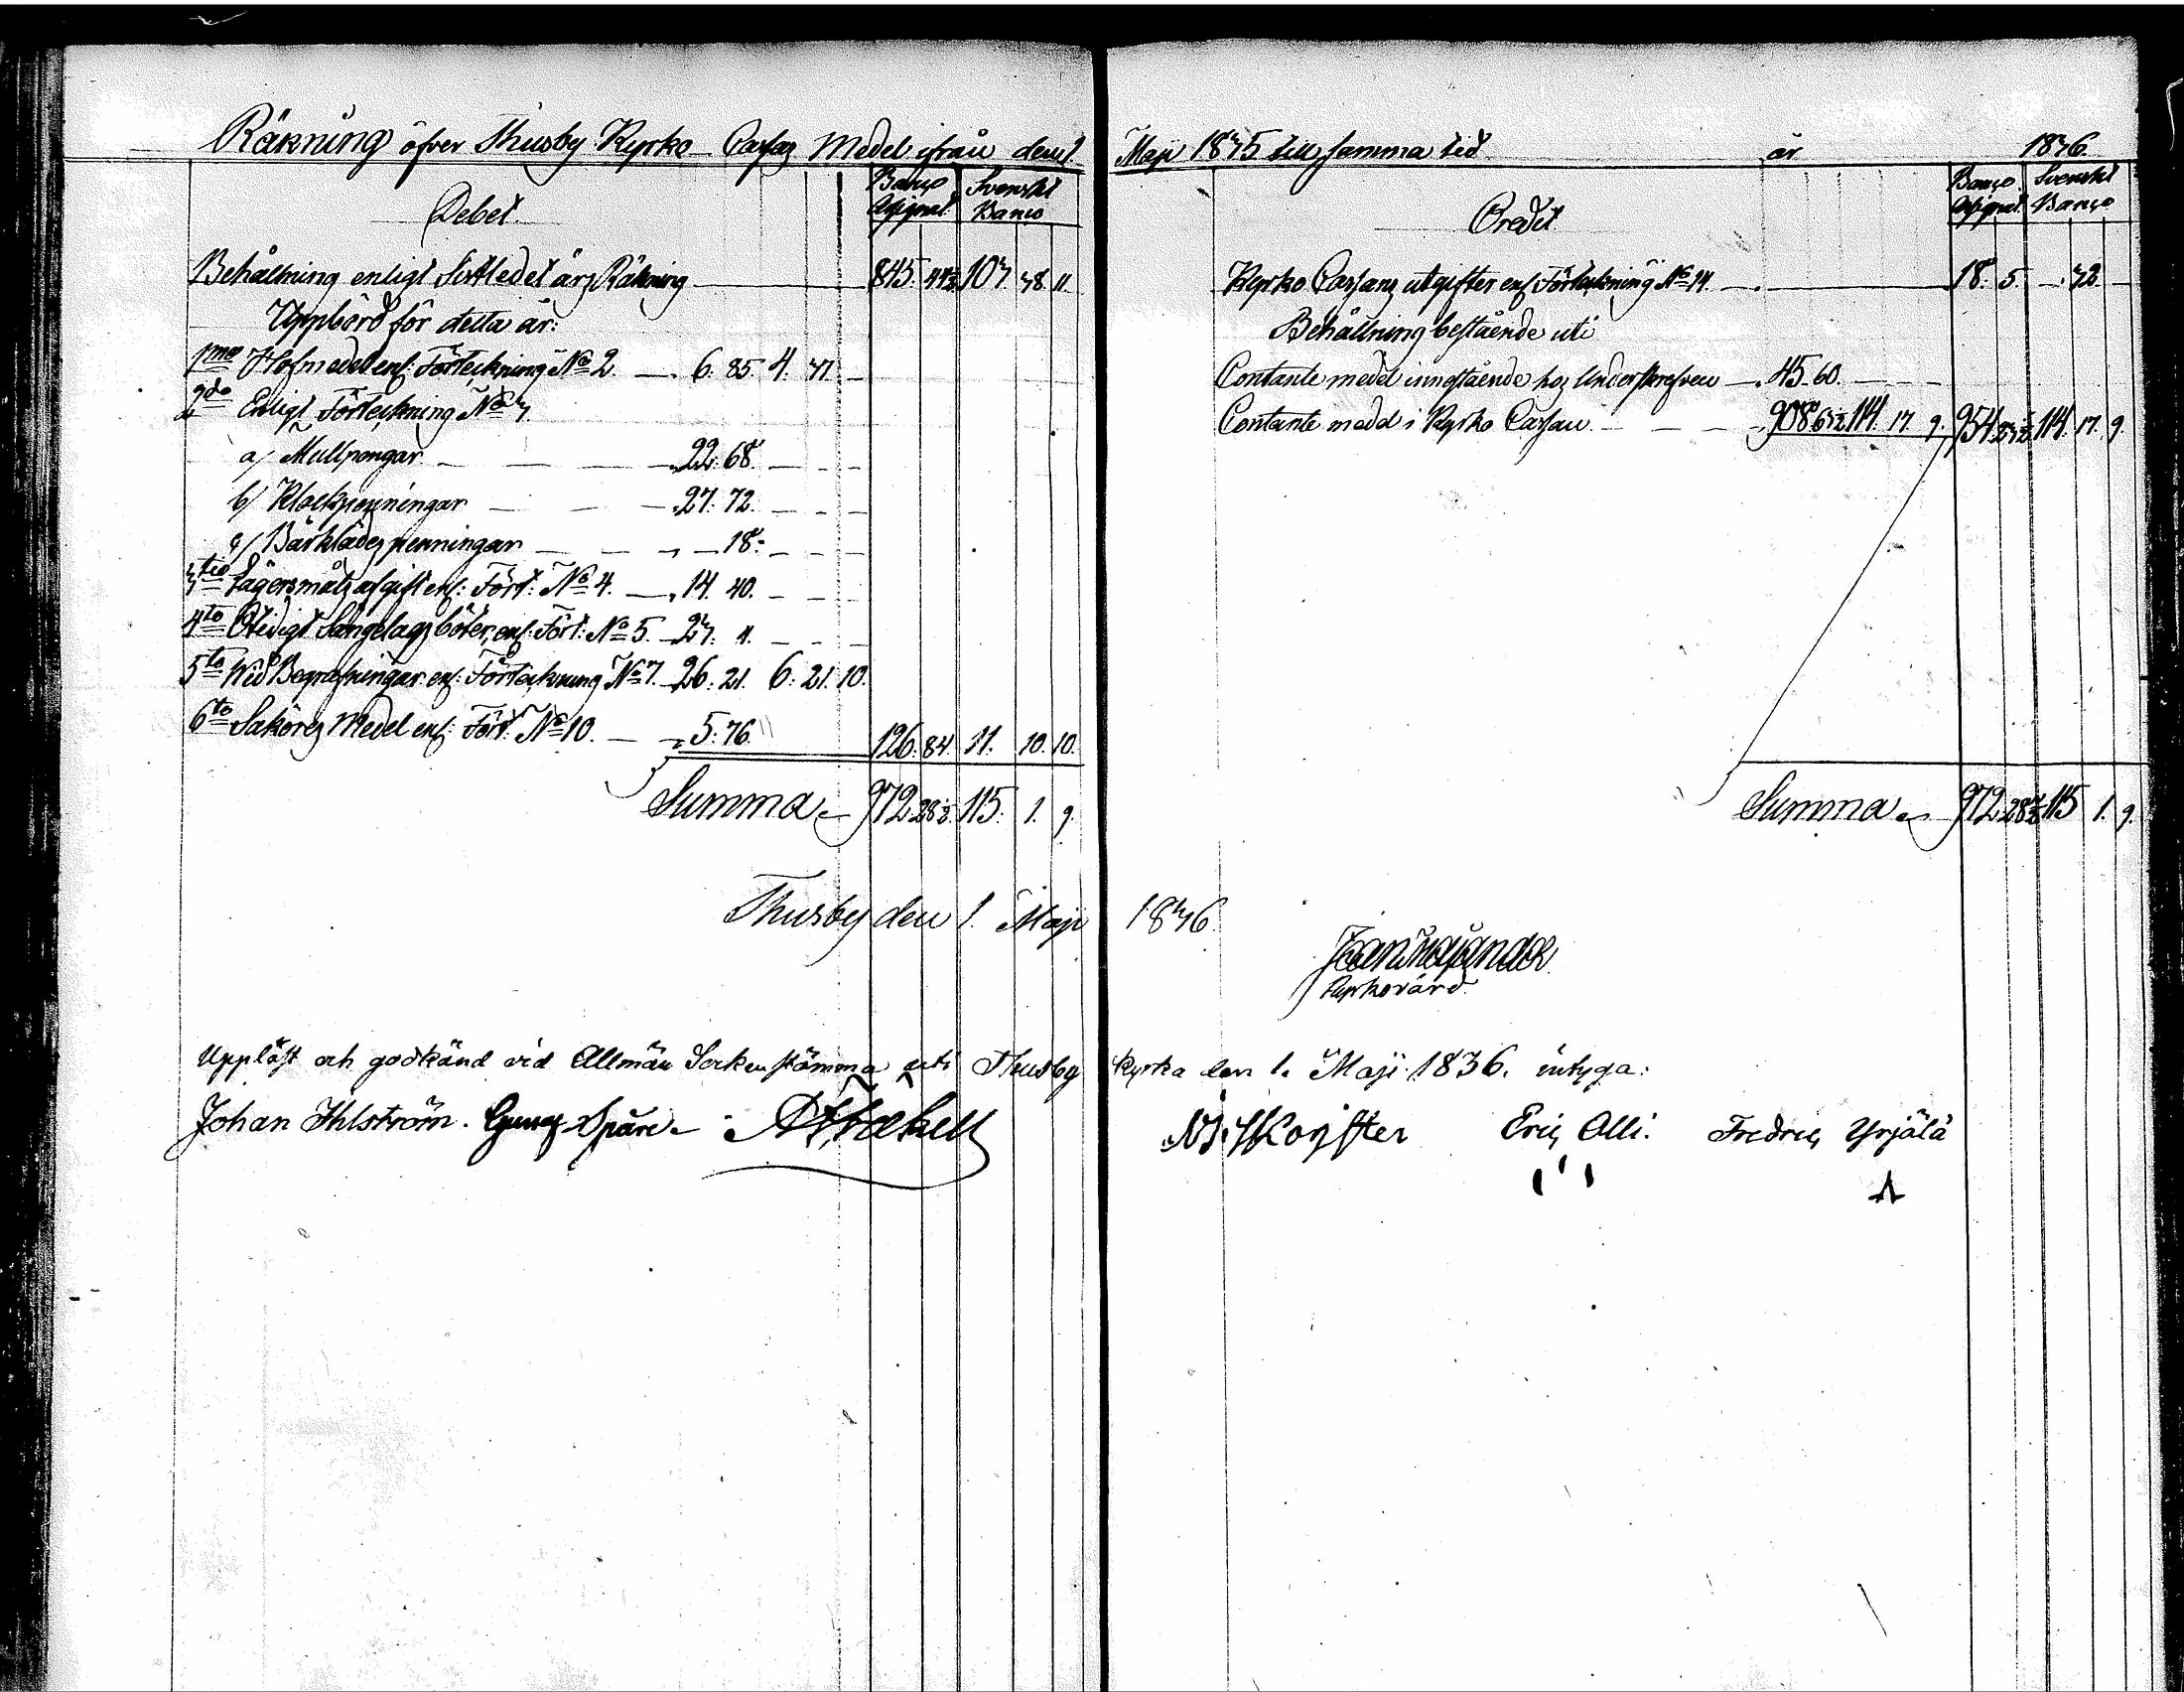 Räkning öfver Thusby Kyrko Cassas Medel ifrån den 1
Debet
Banco Assignat. Svenskt Banco
Behållning enligt Sistledet års Räkning 845. 44½ 103 38 11.
Uppbörd för detta år:
1mo Håfmedel enl. Förteckning No 2. 6. 85. 4. 37.
2do Enligt Förteckning No 3
a/ Mullpengar 22. 68.
b/ Klockpenningar 27. 72.
c/ Bårklädes penningar 18.
3tio Lägersmåls afgift enl. Fört: No 4. 14. 40.
4to Otidigt Sängelags böter, enl. Fört: No 5. 23. 4.
5to Wid Begrafningar enl. Förteckning No 7. 26. 21. 6. 21. 10.
6to Saköres Medel enl. Fört. No 10. 5. 76. 126. 84. 11. 10. 10.
Summa 972. 28½. 115. 1. 9.
Thusby den 1. Maji
Uppläst och godkänd vid Allmän Sockenstämma uti Thusby
Johan Ihlström. Spåre
Maji 1835 till samma tid år 1836.
Credit.
Banco Assignat. Svenskt Banco
Kyrko Cassans utgifter enl. Förteckning No 14. 18. 5. 32.
Behållning bestående uti
Contante medel innestående hos Underskrefven 45. 60.
Contante medel i Kyrko Cassan 908. 63½ 114. 17. 9. 954. 23½ 114. 17. 9.
Summa 972. 28½ 115 1. 9.
1836.
Kyrkovärd.
Kyrka den 1. Maji 1836. intyga:
Eric Olli. Fredric Yrjälä